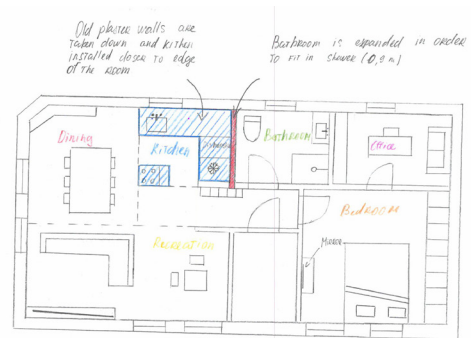 Old plaster walls are
taken down and kithen
installed closer to edge
of the room
Bathroom is expanded in order
to fit in shower (0,9 m)
Dining
Kitchen
Bathroom
Office
Recreation
Bedroom
Mirror